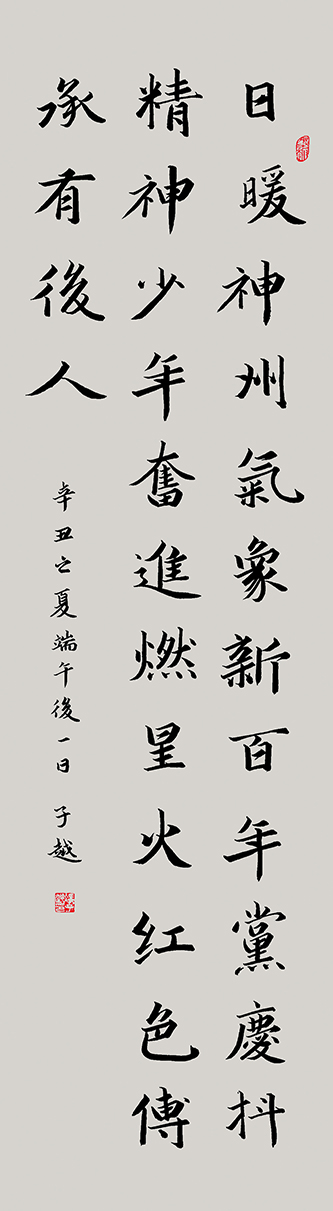 日暖神州氣象新百年黨慶抖
精神少年奮進燃星火红色傅
承有後人
辛丑之夏端午後一日 子越